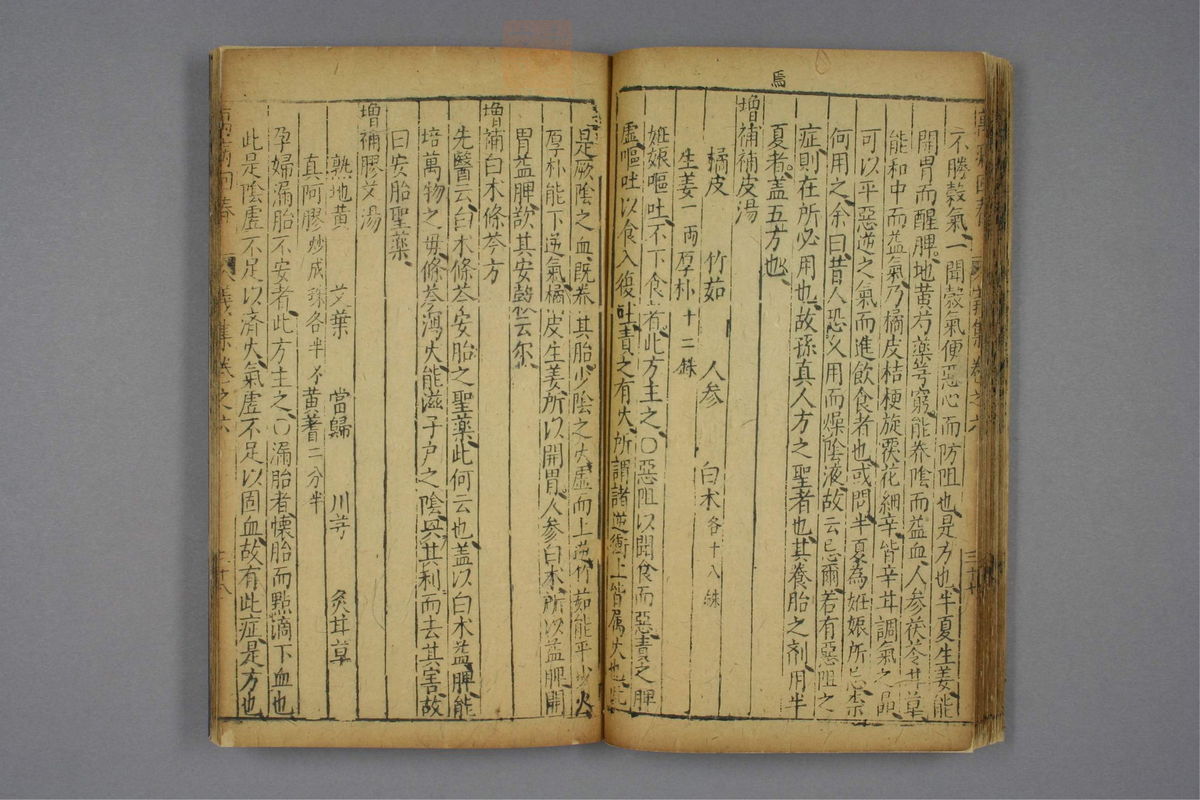 焉
不勝穀氣、一聞穀氣便惡心而防阻也、是方也、半夏生姜、能
開胃而醒脾。地黄芍藥芎窮、能养陰而益血、人參茯苓甘草、
能和中而益氣、乃橘皮桔梗旋覆花細辛、皆辛甘調氣之品
可以平惡逆之氣而進飲食者也、或問半夏為妊娠所忌柰
何用之、余曰、昔人恐久用而燥陰液、故云忌爾、若有惡阻之
症、則在所必用也、故孫真人方之聖者也、其養胎之剂、用半
夏者、盖五方也、
增補補皮湯
橘皮 竹茹 人参 白木各十八銖
生姜一兩厚朴十二銖
妊娠嘔吐、不下食者、此方主之、〇惡阻以聞食而惡、責之脾
虛、嘔吐以食入復吐、責之有火、所謂諸逆衝上、皆属火也、
是厥陰之血、既养其胎、少陰之火、虛而上逆、竹茹能平少火、
厚朴能下逆氣、橘皮生姜、所以開胃。人参白木、所以益脾、開
胃益脾、欲其安穀云尔
增補白木條芩方
先醫云、白木條芩、安胎之聖藥、此何云也、盖以白木益脾、能
培萬物之毋、條芩瀉火、能滋子户之陰、與其利而去其害、故
曰安胎聖藥、
增補膠艾湯
熟地黄 艾葉 當歸 川芎 炙甘草
真阿膠炒成珠各半 黄蓍二分半
孕婦漏胎不安者、此方主之、〇漏胎者、懷胎而點滴下血也、
此是陰虛不足以济火、氣虛不足以固血、故有此症、是方也、